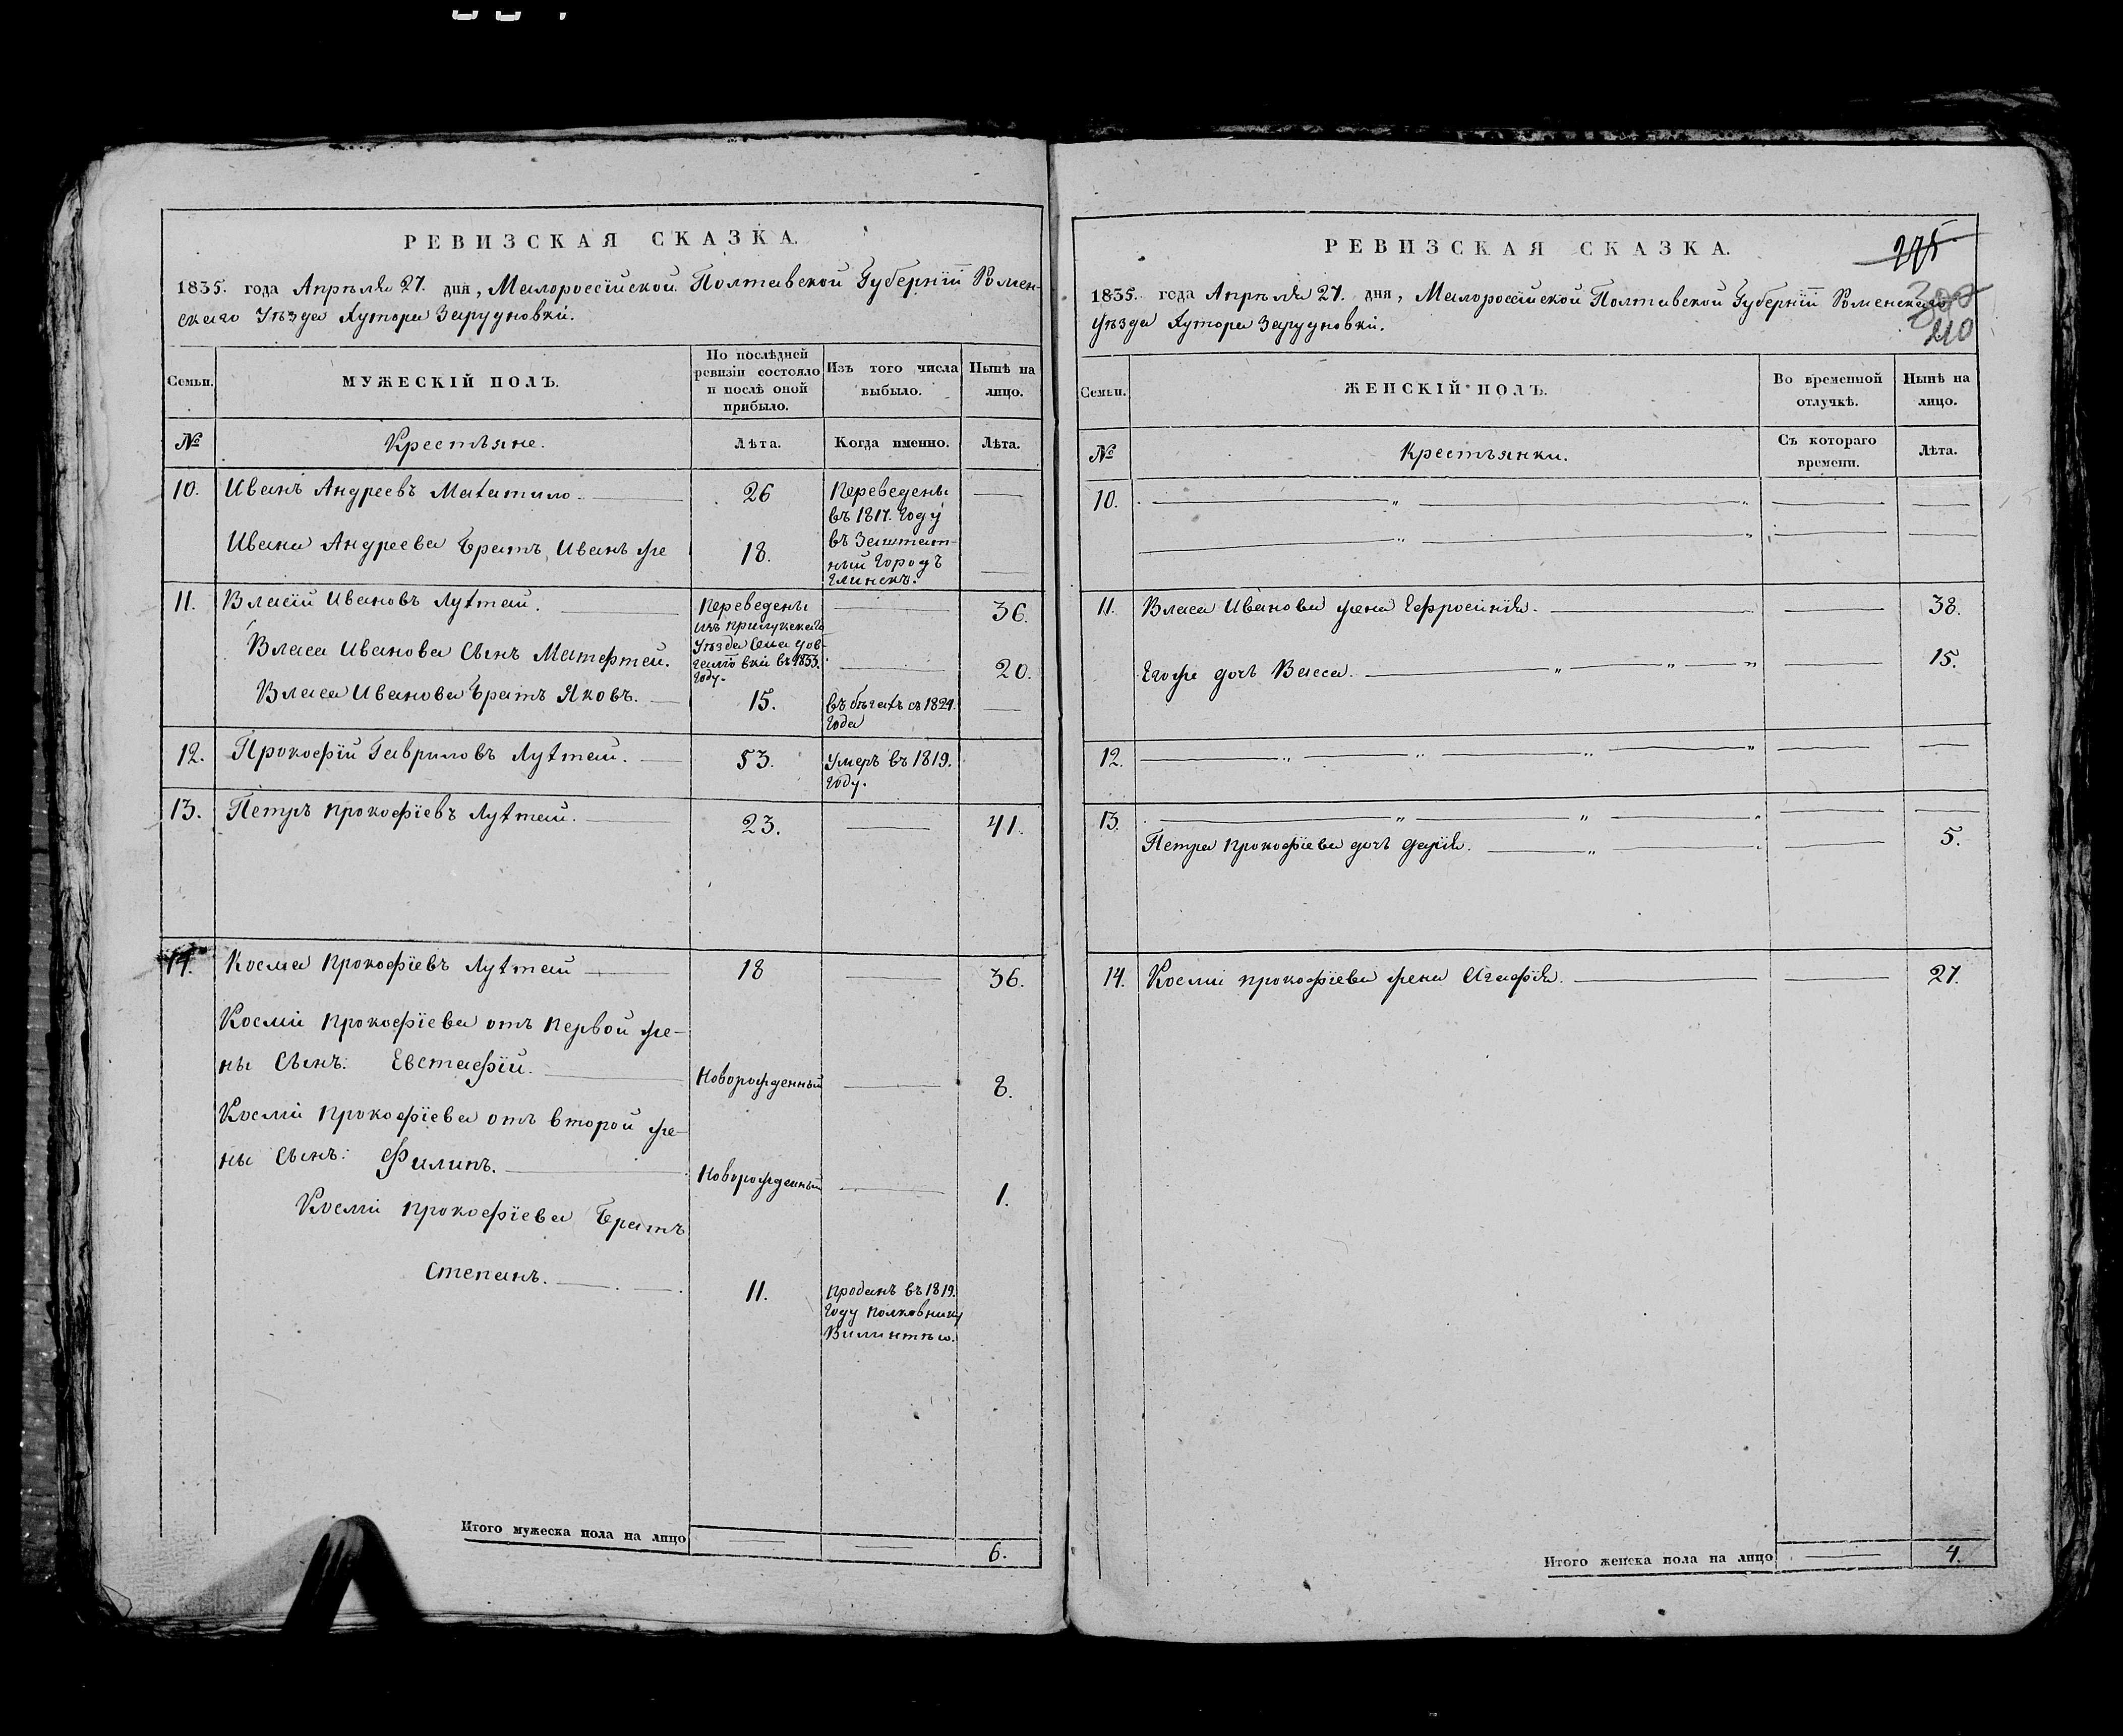 РЕВИЗСКАЯ СКАЗКА.
1835. года Апрѣля 27. дня, Малороссійской Полтавской Губерніи Ромен-
скаго Уѣзда Хутора Заруднoвки.
Семьи.
МУЖЕСКІЙ ПОЛЪ.
По послѣдней
ревизіи состояло
и послѣ оной
прибыло.
Изъ того числа
выбыло.
Нынѣ на
лицо.
№
Крестьяне.
Лѣта.
Когда именно.
Лѣта.
10. Иванъ Андреевъ 26 Переведены
въ 1817. году
Ивана Андреева братъ Иванъ же 18. въ Заштат-
ный городъ
Глинскъ.
11. Власій Ивановъ Лухтай. Переведены 36.
изъ прилукскаго
Уѣзда
Власа Иванова Сынъ въ 1833. 20.
году.
Власа Иванова братъ Яковъ. 15. въ бѣгахъ съ 1824.
года
12. Прокофій Гавриловъ Лухтай. 53. Умеръ въ 1819.
году.
13. Петръ Прокофіевъ Лухтай. 23. 41.
14. Косма Прокофіевъ Лухтай 18 36.
Косми Прокофіева отъ первой же-
ны Сынъ: Евстафій. Новорожденный 8.
Косми Прокофіева отъ второй же-
ны Сынъ: Филипъ. Новорожденный 1.
Косми Прокофіева братъ
Степанъ. 11. проданъ въ 1819.
году полковнику
Итого мужеска пола на лицо 6.
РЕВИЗСКАЯ СКАЗКА.
275
210
1835. года Апрѣля 27. дня, Малороссійской Полтавской Губерніи Роменскаго
Уѣзда Хутора Заруднoвки.
Семьи.
ЖЕНСКІЙ ПОЛЪ.
Во временной
отлучкѣ.
Нынѣ на
лицо.
№
Крестьянки.
Съ котораго
времени.
Лѣта.
10.
11. Власа Иванова жена Ефросинія. 38.
Егоже дочь Васса. 15.
12.
13.
Петра Прокофіева дочь Дарія. 5.
14. Косми прокофіева жена Агафія. 27.
Итого женска пола на лицо 4.